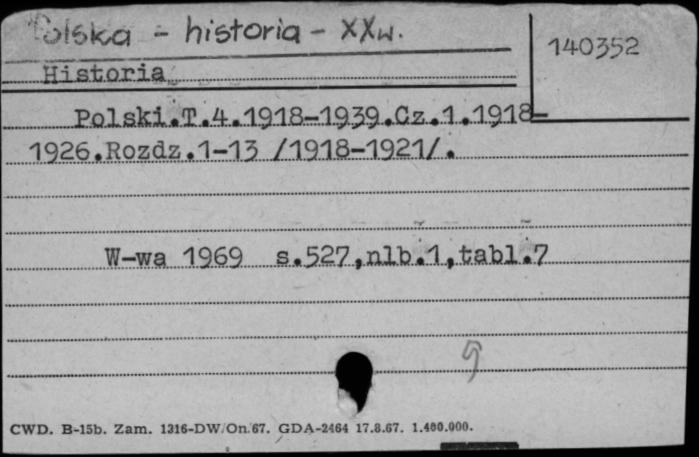 Polska - historia - XXw.
140352
Historia
Polski.T.4.1918-1939.Cz.1.1918-
1926.Rozdz.1-13 /1918-1921/.
W-wa 1969 s.527,nlb.1,tabl.7
CWD. B-15b. Zam. 1316-DW/On/67. GDA-2464 17.8.67. 1.400.000.